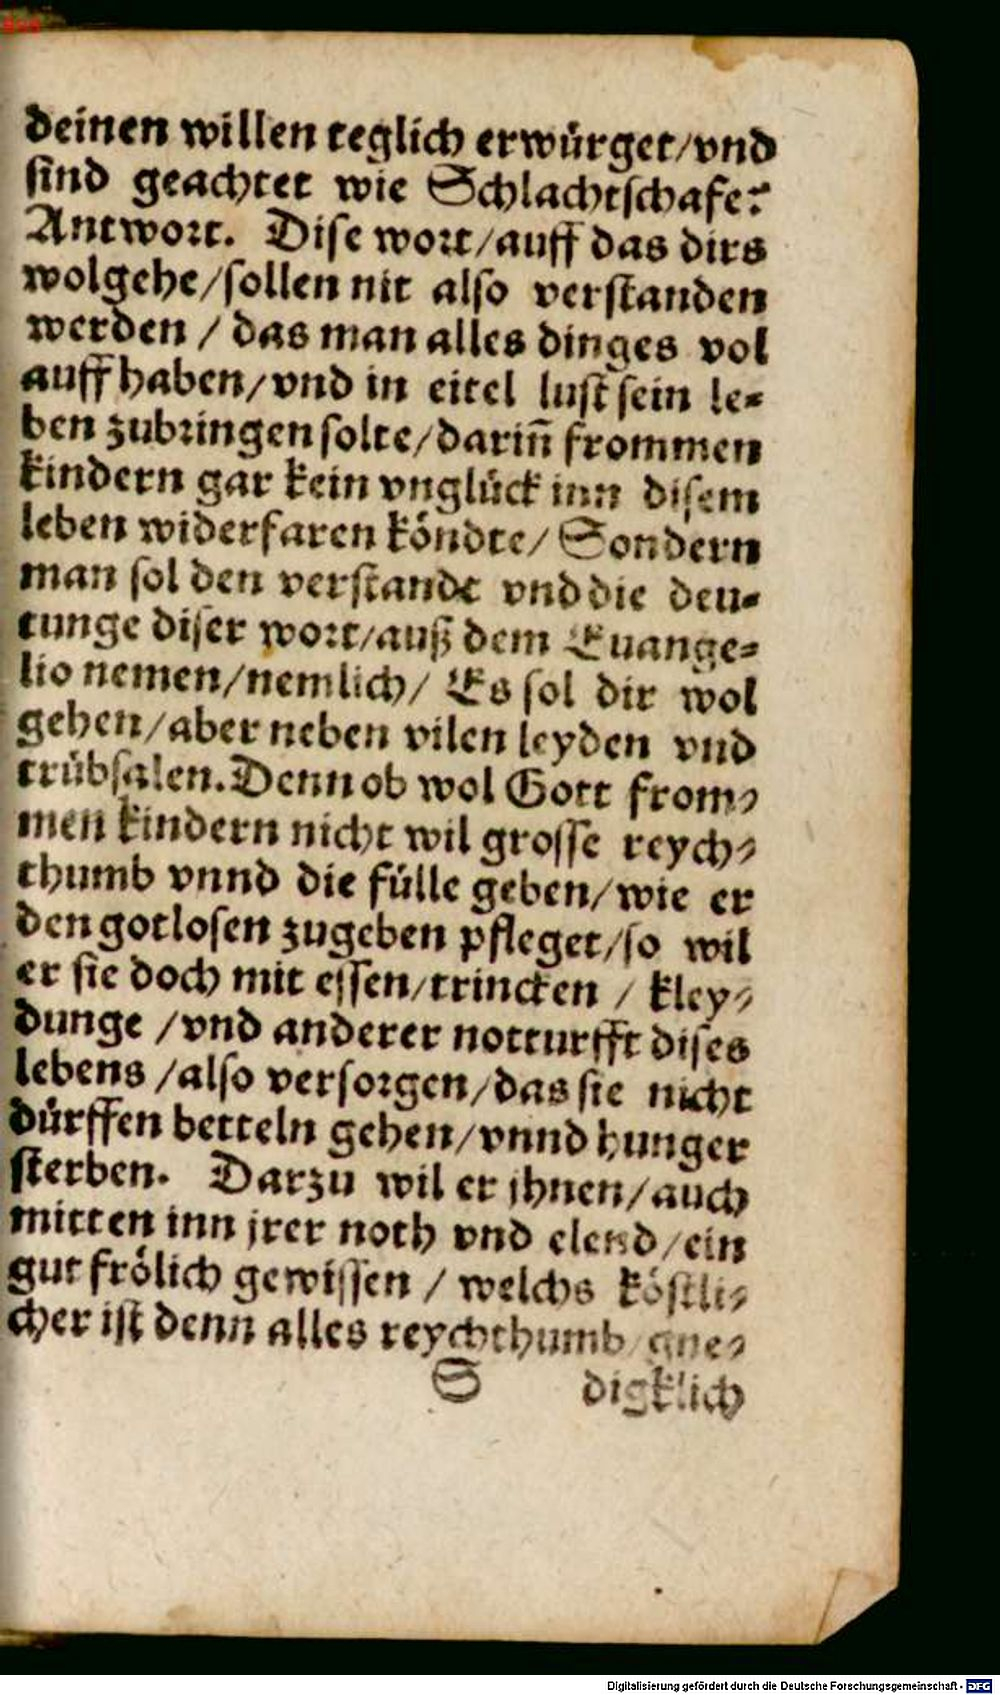 deinen willen teglich erwürget/vnd
sind geachtet wie Schlachtschafe?
Antwort. Dise wort/auff das dirs
wolgehe/sollen nit also verstanden
werden / das man alles dinges vol
auff haben/vnd in eitel lust sein le-
ben zubringen solte/dariñ frommen
kindern gar kein vnglück inn disem
leben widerfaren köndte/ Sondern
man sol den verstandt vnd die deu-
tunge diser wort/auß dem Euange-
lio nemen/nemlich/ Es sol dir wol
gehen/aber neben vilen leyden vnd
trübsalen. Denn ob wol Gott from-
men kindern nicht wil grosse reych-
thumb vnnd die fülle geben/wie er
den gotlosen zugeben pfleget/so wil
er sie doch mit essen/trincken / kley-
dunge /vnd anderer notturfft dises
lebens /also versorgen/das sie nicht
dürffen betteln gehen/vnnd hunger
sterben. Darzu wil er jhnen/auch
mitten inn jrer noth vnd elend/ein
gut frölich gewissen / welchs köstli-
cher ist denn alles reychthumb/gne-
S digklich
Digitalisierung gefördert durch die Deutsche Forschungsgemeinschaft - DFG